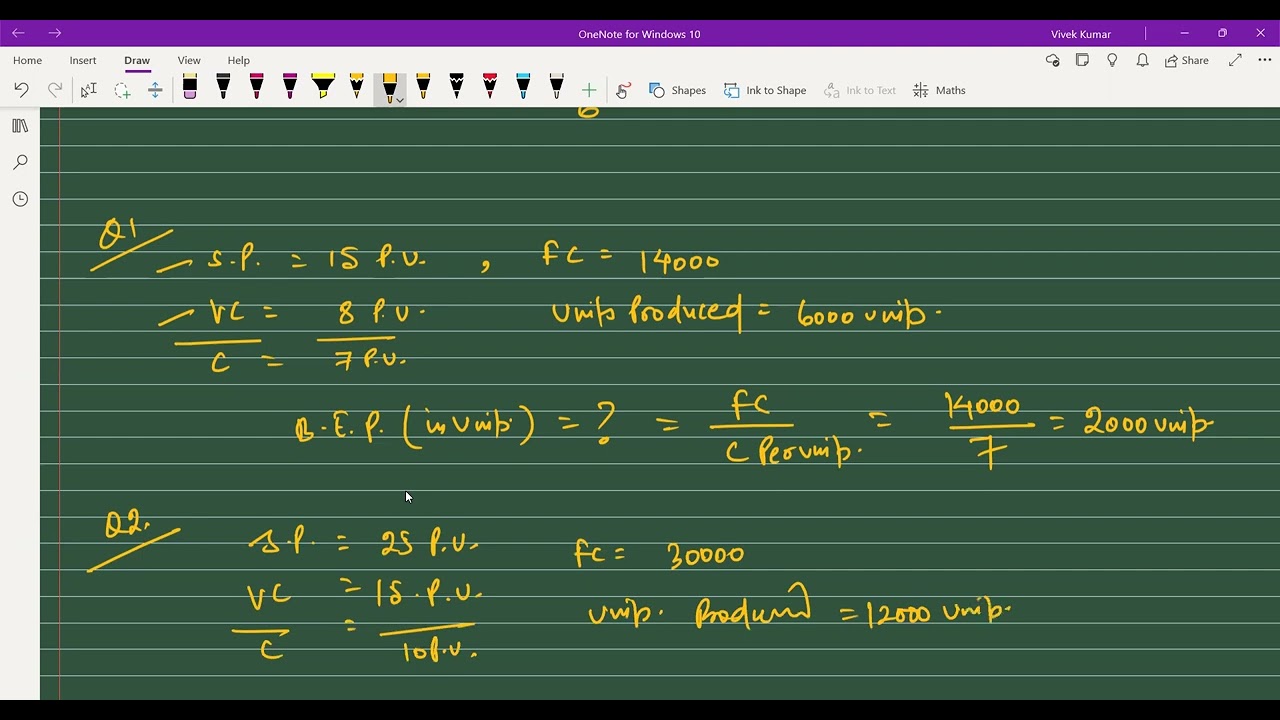 OneNote for Windows 10
Vivek Kumar
Home Insert Draw View Help
Share
Shapes Ink to Shape Ink to Text Maths
6
Q1
S.P. = 15 P.U. , FC = 14000
VC = 8 P.U. Units Produced = 6000 units.
C = 7 P.U.
B.E.P. (in Units) = ? = FC / C Per unit. = 14000 / 7 = 2000 units
Q2.
S.P. = 25 P.U. FC = 30000
VC = 15 P.U. Units. Produced = 12000 units.
C = 10 P.U.